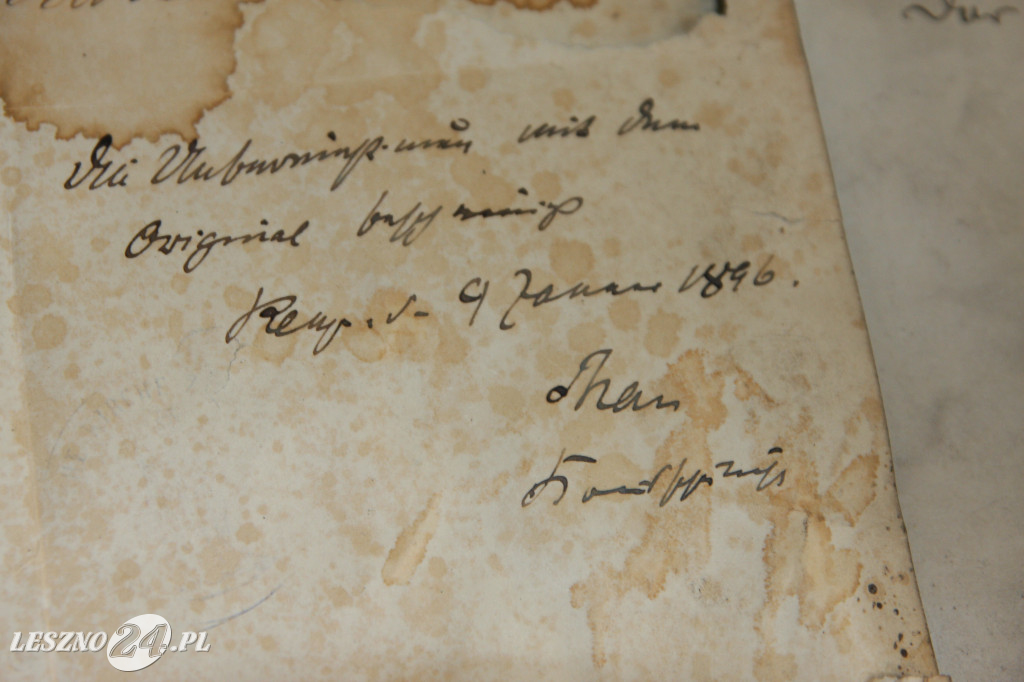 Der
Die Übereinstimmung mit dem
Original bescheinigt
d. 9 Januar 1896.
LESZNO24.PL